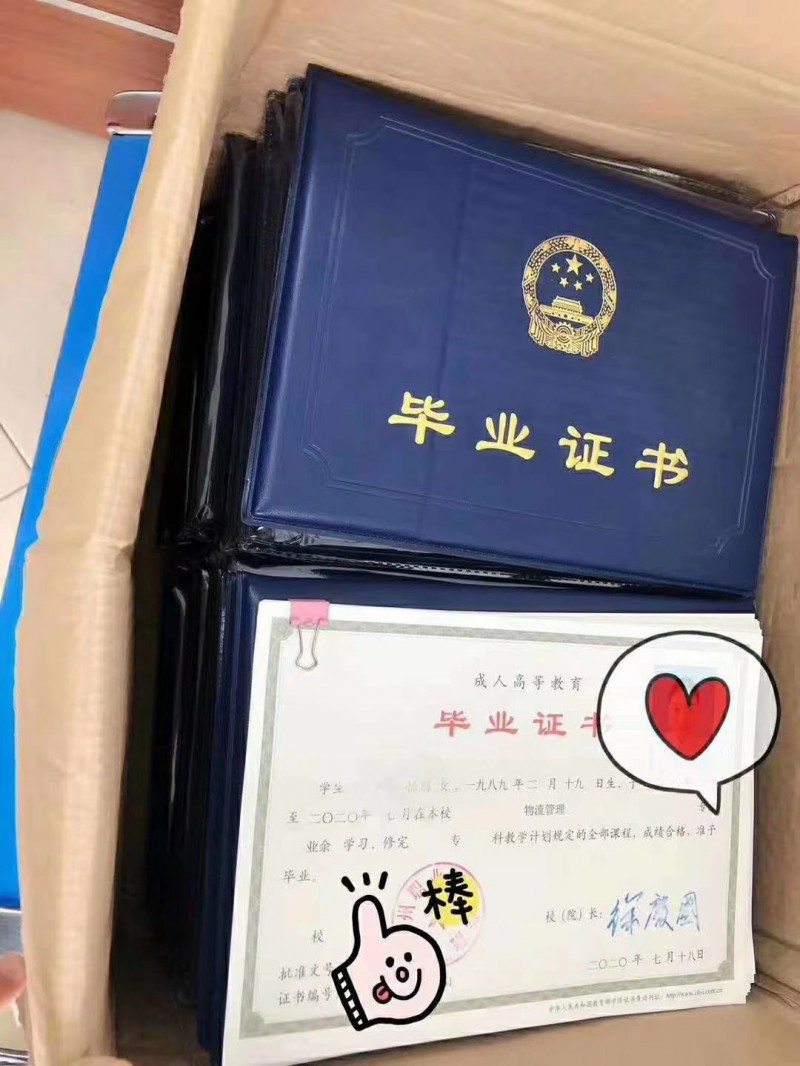 毕业证书
成人高等教育
毕业证书
学生 女,一九八九年 二 月 十九 日生,于
至 二〇二〇年 七 月在本校 物流管理 专
业余 学习,修完 专 科教学计划规定的全部课程,成绩合格,准予
毕业。
棒
校 校(院)长:
二〇二〇年 七 月十八日
批准文号
证书编号
中华人民共和国教育部学历证书查询网址:http://www.chsi.com.cn